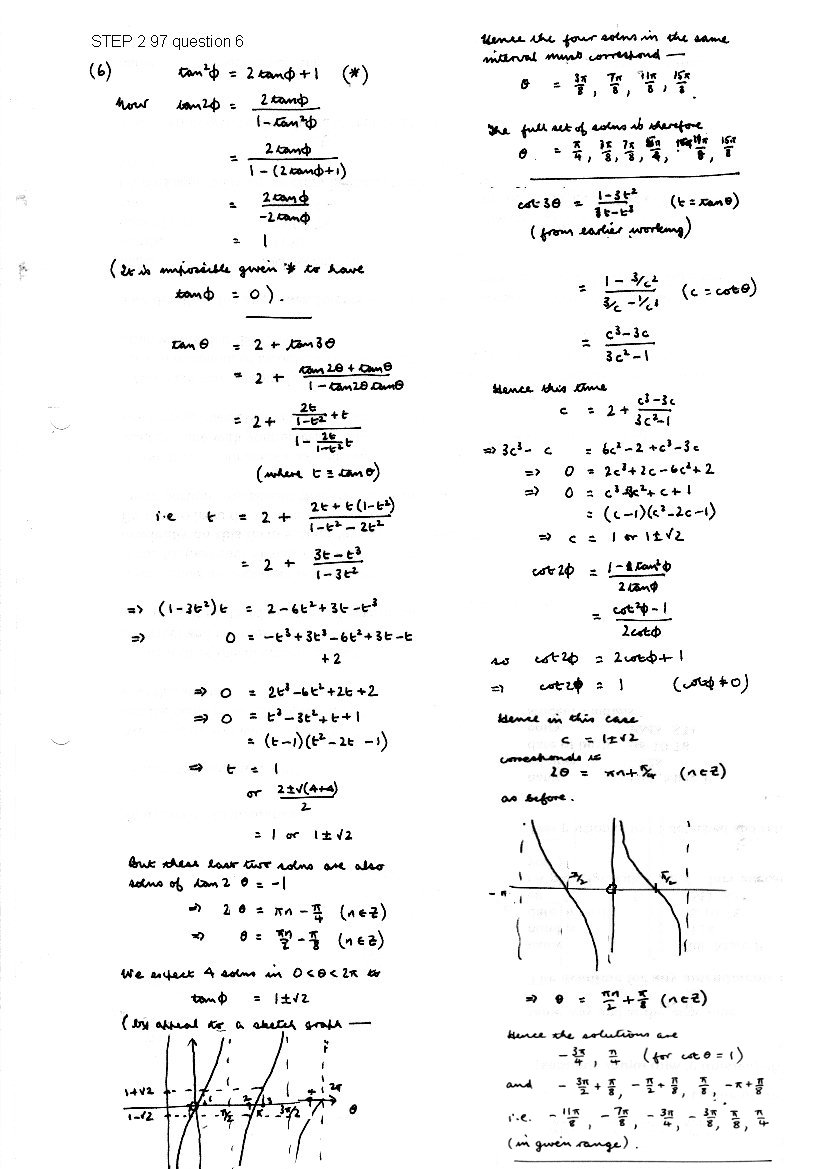 STEP 2 97 question 6
(6) tan²φ = 2tanφ+1 (*)
Now tan2φ = 2tanφ / (1-tan²φ)
= 2tanφ / (1-(2tanφ+1))
= 2tanφ / (-2tanφ)
= 1
(It is impossible given * to have
tanφ = 0).
tanθ = 2 + tan3θ
= 2 + (tan2θ+tanθ) / (1-tan2θtanθ)
= 2 + (2t/(1-t²) + t) / (1 - (2t/(1-t²))t)
(where t ≡ tanθ)
i.e t = 2 + (2t+t(1-t²)) / (1-t²-2t²)
= 2 + (3t-t³) / (1-3t²)
=> (1-3t²)t = 2-6t²+3t-t³
=> 0 = -t³+3t³-6t²+3t-t
+2
=> 0 = 2t³-6t²+2t+2
=> 0 = t³-3t²+t+1
= (t-1)(t²-2t-1)
=> t = 1
or (2±√(4+4)) / 2
= 1 or 1±√2
But these last two solns are also
solns of tan2θ = -1
=> 2θ = πn - π/4 (n∈Z)
=> θ = πn/2 - π/8 (n∈Z)
We expect 4 solns in 0<θ<2π to
tanφ = 1±√2
(by appeal to a sketch graph —
1+√2
1-√2
π/2 π 3π/2 2π θ
Hence the four solns in the same
interval must correspond —
θ = 3π/8, 7π/8, 11π/8, 15π/8.
The full set of solns is therefore
θ = π/4, 3π/8, 7π/8, 15π/8
cot3θ = (1-3t²) / (3t-t³) (t=tanθ)
(from earlier working)
= (1-3/c²) / (3/c-1/c³) (c=cotθ)
= (c³-3c) / (3c²-1)
Hence this time
c = 2 + (c³-3c) / (3c²-1)
=> 3c³-c = 6c²-2+c³-3c
=> 0 = 2c³+2c-6c²+2
=> 0 = c³-3c²+c+1
= (c-1)(c²-2c-1)
=> c = 1 or 1±√2
cot2φ = (1-tan²φ) / 2tanφ
= (cot²φ-1) / 2cotφ
so cot2φ = 2cotφ+1
=> cot2φ = 1 (cotφ≠0)
Hence in this case
c = 1±√2
corresponds to
2θ = πn+π/4 (n∈Z)
as before.
-π π/2 0 π/2
=> θ = πn/2 + π/8 (n∈Z)
Hence the solutions are
-3π/4, π/4 (for cotθ=1)
and -3π/2+π/8, -π/2+π/8, π/8, -π+π/8
i.e. -11π/8, -7π/8, -3π/4, -3π/8, π/8, π/4
(in given range).